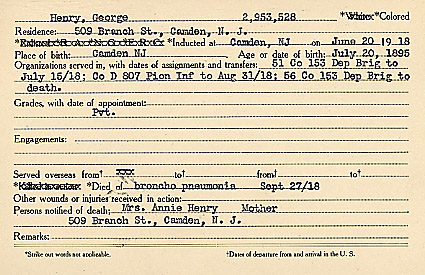 Henry, George 2,953,528 *White *Colored
Residence: 509 Branch St., Camden, N. J.
*Inducted at Camden, NJ on June 20 1918
Place of birth: Camden NJ Age or date of birth: July 20, 1895
Organizations served in, with dates of assignments and transfers: 51 Co 153 Dep Brig to
July 15/18; Co D 807 Pion Inf to Aug 31/18; 56 Co 153 Dep Brig to
death.
Grades, with date of appointment:
Pvt.
Engagements:
Served overseas from† xxx to† from† to†
*Died of broncho pneumonia Sept 27/18
Other wounds or injuries received in action:
Persons notified of death: Mrs. Annie Henry Mother
509 Branch St., Camden, N. J.
Remarks:
*Strike out words not applicable. †Dates of departure from and arrival in the U. S.